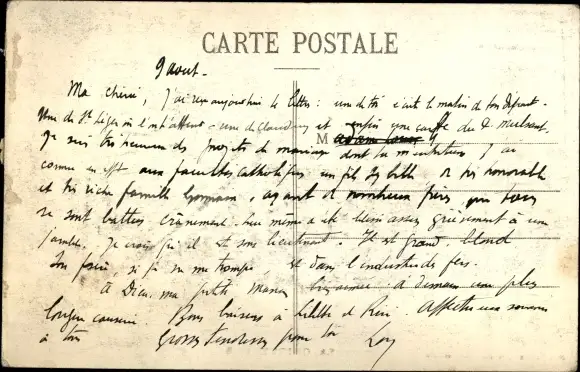 CARTE POSTALE
9 aout.
Ma chérie, j'ai reçu aujourd'hui lettres : une de toi écrite le matin de ton départ.
Une de St Léger où l'on t'attend une de et enfin une carte du
M
Je suis très heureux des projets de mariage dont tu m'entretiens, j'ai
connu en effet aux facultés catholiques un fils très honorable
et très riche famille , ayant de nombreux frères, qui tous
se sont battus crânement. Lui même a été blessé assez grièvement à une
jambe. Je crois qu'il est sous lieutenant. Il est grand, blond
Son père, si je ne me trompe, est dans l'industrie du fer.
A Dieu, ma petite maman bien aimée. A demain une plus
longue causerie. Bons baisers à et Rémi. Affectueux souvenirs
à tous Grosses tendresses pour toi